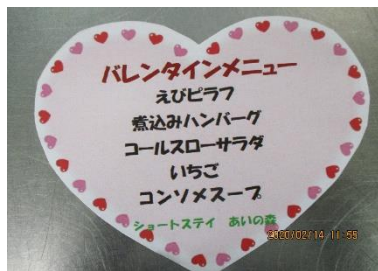 バレンタインメニュー
えびピラフ
煮込みハンバーグ
コールスローサラダ
いちご
コンソメスープ
ショートステイ　あいの森
2020/02/14 11:55